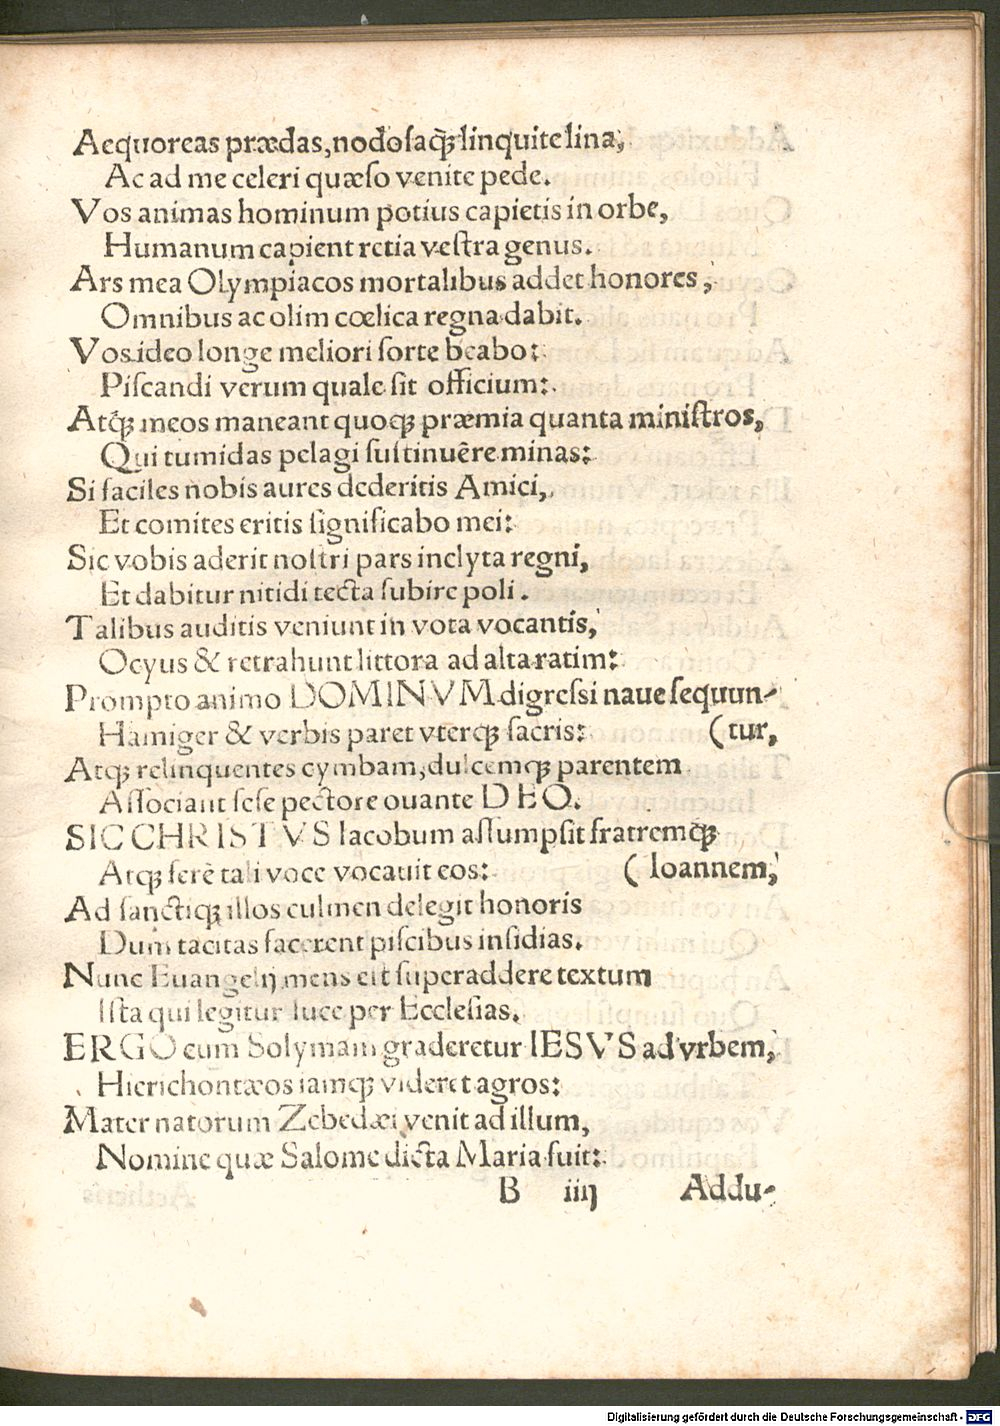 Aequoreas prædas, nodosaq̃ꝫ linquite lina,
Ac ad me celeri quæso venite pede.
Vos animas hominum potius capietis in orbe,
Humanum capient retia vestra genus.
Ars mea Olympiacos mortalibus addet honores,
Omnibus ac olim cœlica regna dabit.
Vos ideo longe meliori sorte beabo:
Piscandi verum quale sit officium:
Atq̃ꝫ meos maneant quoqꝫ præmia quanta ministros,
Qui tumidas pelagi sustinuêre minas:
Si faciles nobis aures dederitis Amici,
Et comites eritis significabo mei:
Sic vobis aderit nostri pars inclyta regni,
Et dabitur nitidi tecta subire poli.
Talibus auditis veniunt in vota vocantis,
Ocyus & retrahunt littora ad alta ratim:
Prompto animo DOMINVM digressi naue sequun-
Hamiger & verbis paret vterqꝫ sacris: (tur,
Atqꝫ relinquentes cymbam, dulcemqꝫ parentem
Associant sese pectore ouante DEO.
SIC CHRISTVS Iacobum assumpsit fratremq̃ꝫ
Atqꝫ ferè tali voce vocauit eos: (Ioannem,
Ad sanctiqꝫ illos culmen delegit honoris
Dum tacitas facerent piscibus insidias.
Nunc Euangelij mens est superaddere textum
Ista qui legitur luce per Ecclesias.
ERGO cum Solymam graderetur IESVS ad vrbem,
Hierichontæos iamqꝫ videret agros:
Mater natorum Zebedæi venit ad illum,
Nomine quæ Salome dicta Maria fuit:
B iiij Addu-
Digitalisierung gefördert durch die Deutsche Forschungsgemeinschaft - DFG